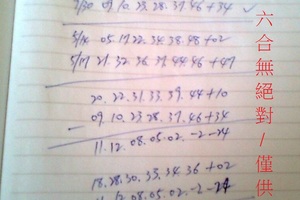 09.10.23.28.37.46+34
5/14 05.17.22.34.38.48+02
5/17 21.32.36.37.44.46+47
20.22.31.33.39.44+10
- 09.10.23.28.37.46+34
11.12.08.05.02.-2-24
18.28.30.33.34.36+02
11.12.08.05.02.-2-24
六合無絕對/僅供